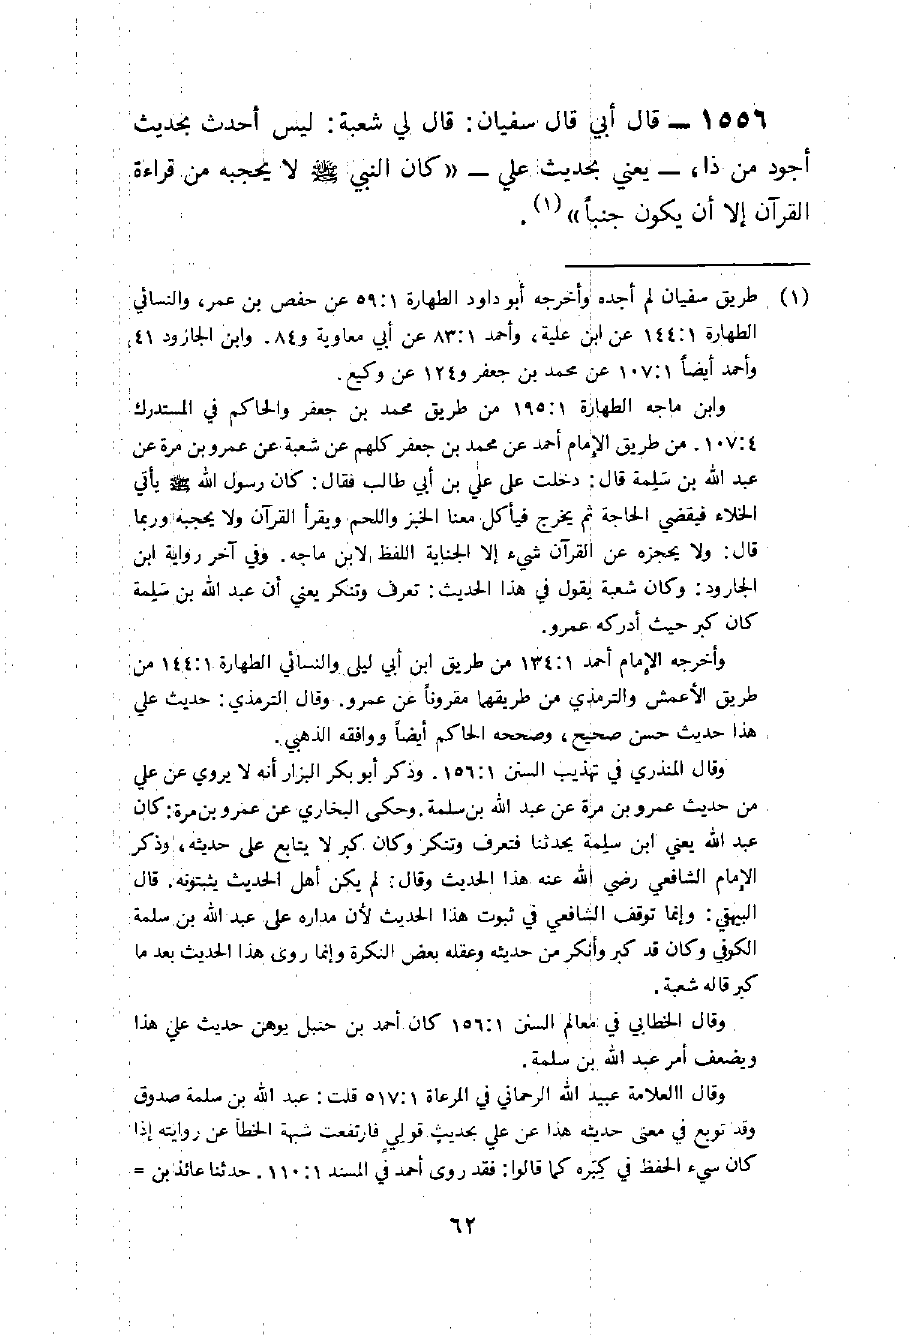 ١٥٥٦ ــ قال أبي قال سفيان: قال لي شعبة: ليس أحدث بحديث
أجود من ذا، ــ يعني بحديث علي ــ «كان النبي ﷺ لا يحجبه من قراءة
القرآن إلا أن يكون جنباً»(١).
(١) طريق سفيان لم أجده وأخرجه أبو داود الطهارة ٥٩:١ عن حفص بن عمر، والنسائي
الطهارة ١٤٤:١ عن ابن علية، وأحمد ٨٣:١ عن أبي معاوية و٨٤. وابن الجارود ٤١،
وأحمد أيضاً ١٠٧:١ عن محمد بن جعفر و١٢٤ عن وكيع.
وابن ماجه الطهارة ١٩٥:١ من طريق محمد بن جعفر والحاكم في المستدرك
١٠٧:٤. من طريق الإمام أحمد عن محمد بن جعفر كلهم عن شعبة عن عمرو بن مرة عن
عبد الله بن سَلِمة قال: دخلت على علي بن أبي طالب فقال: كان رسول الله ﷺ يأتي
الخلاء فيقضي الحاجة ثم يخرج فيأكل معنا الخبز واللحم ويقرأ القرآن ولا يحجبه وربما
قال: ولا يحجزه عن القرآن شيء إلا الجنابة اللفظ لابن ماجه. وفي آخر رواية ابن
الجارود: وكان شعبة يقول في هذا الحديث: تعرف وتنكر يعني أن عبد الله بن سَلِمة
كان كبر حيث أدركه عمرو.
وأخرجه الإمام أحمد ١٣٤:١ من طريق ابن أبي ليلى والنسائي الطهارة ١٤٤:١ من
طريق الأعمش والترمذي من طريقهما مقروناً عن عمرو. وقال الترمذي: حديث علي
هذا حديث حسن صحيح، وصححه الحاكم أيضاً ووافقه الذهبي.
وقال المنذري في تهذيب السنن ١٥٦:١. وذكر أبو بكر البزار أنه لا يروي عن علي
من حديث عمرو بن مرة عن عبد الله بن سلمة. وحكى البخاري عن عمرو بن مرة: كان
عبد الله يعني ابن سلِمة يحدثنا فتعرف وتنكر وكان كبر لا يتابع على حديثه، وذكر
الإمام الشافعي رضي الله عنه هذا الحديث وقال: لم يكن أهل الحديث يثبتونه. قال
البيهقي: وإنما توقف الشافعي في ثبوت هذا الحديث لأن مداره على عبد الله بن سلمة
الكوفي وكان قد كبر وأنكر من حديثه وعقله بعض النكرة وإنما روى هذا الحديث بعد ما
كبر قاله شعبة.
وقال الخطابي في معالم السنن ١٥٦:١ كان أحمد بن حنبل يوهن حديث علي هذا
ويضعف أمر عبد الله بن سلمة.
وقال االعلامة عبيد الله الرحماني في المرعاة ٥١٧:١ قلت: عبد الله بن سلمة صدوق
وقد توبع في معنى حديثه هذا عن علي بحديثٍ قولي فارتفعت شبهة الخطأ عن روايته إذا
كان سيء الحفظ في كِبَره كما قالوا: فقد روى أحمد في المسند ١١٠:١. حدثنا عائذ بن =
٦٢